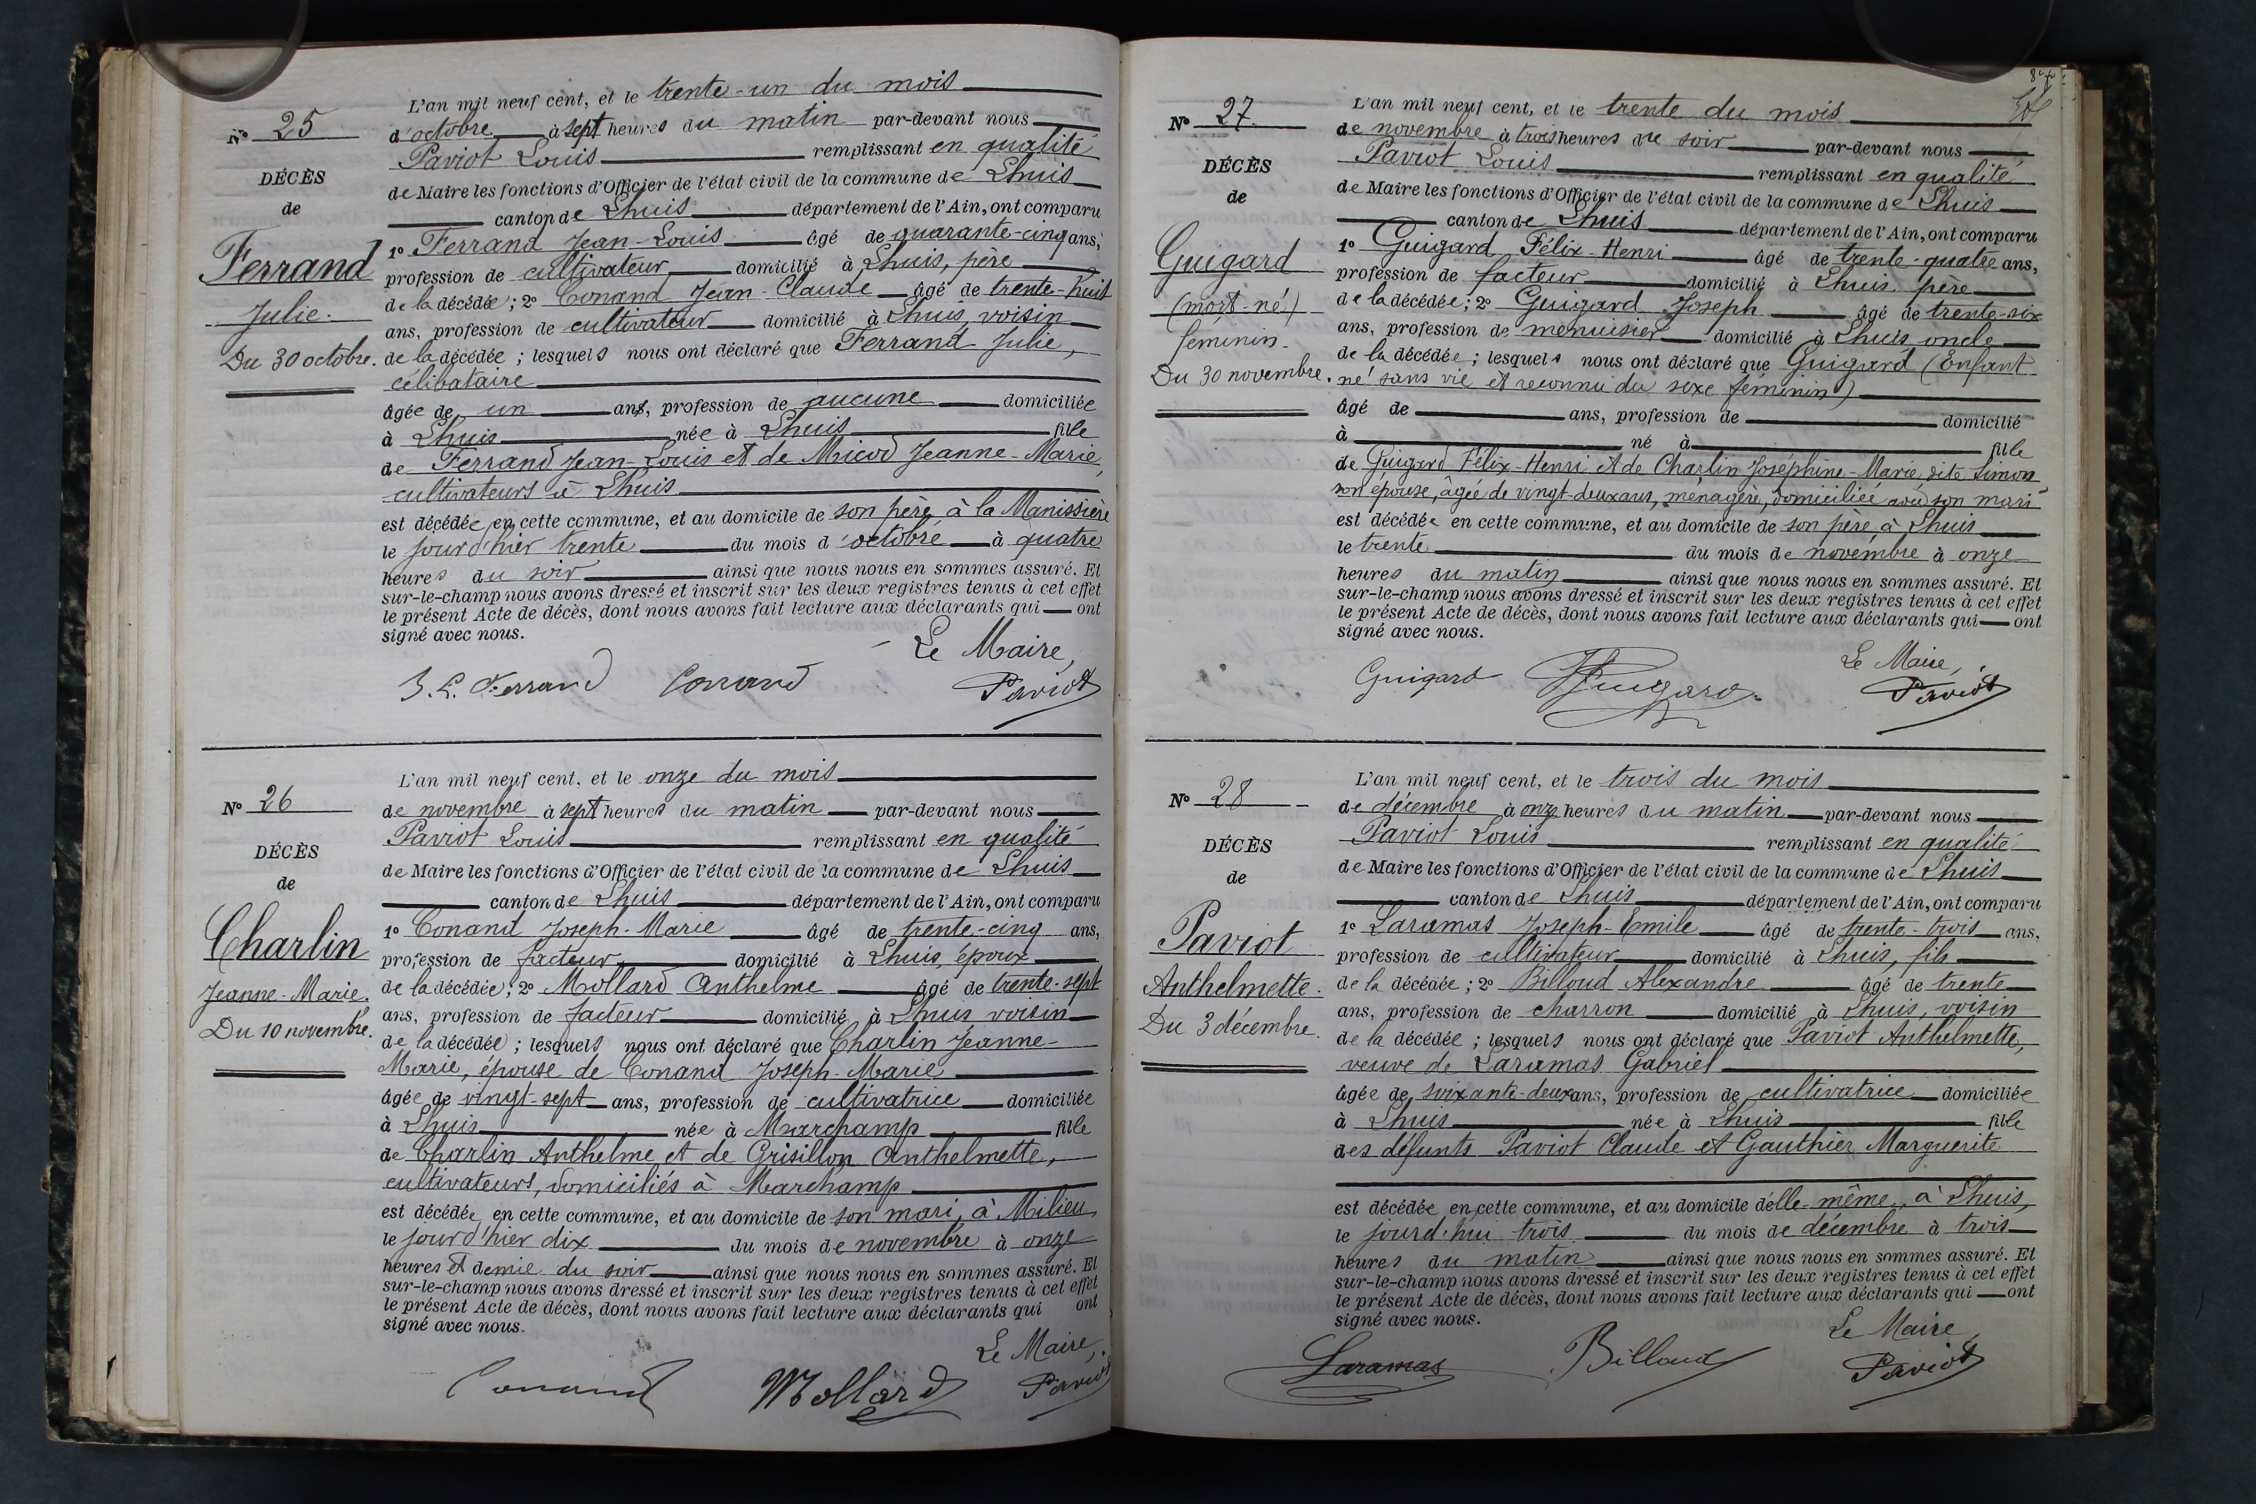 N° 25
DÉCÈS
de
Ferrand
Julie.
Du 30 octobre.
L'an mil neuf cent, et le trente-un du mois
d'octobre à sept heures du matin par-devant nous
Paviot Louis remplissant en qualité
de Maire les fonctions d'Officier de l'état civil de la commune de Lhuis
canton de Lhuis département de l'Ain, ont comparu
1° Ferrand Jean-Louis âgé de quarante-cinq ans,
profession de cultivateur domicilié à Lhuis, père
de la décédée; 2° Conand Jean-Claude âgé de trente-huit
ans, profession de cultivateur domicilié à Lhuis, voisin
de la décédée; lesquels nous ont déclaré que Ferrand Julie,
célibataire
âgée de un ans, profession de aucune domiciliée
à Lhuis née à Lhuis fille
de Ferrand Jean-Louis et de Micod Jeanne-Marie,
cultivateurs à Lhuis
est décédée en cette commune, et au domicile de son père, à la Manissière
le jour d'hier trente du mois d'octobre à quatre
heures du soir ainsi que nous nous en sommes assuré. Et
sur-le-champ nous avons dressé et inscrit sur les deux registres tenus à cet effet
le présent Acte de décès, dont nous avons fait lecture aux déclarants qui ont
signé avec nous.
Le Maire,
J. L. Ferrand Conand Paviot
N° 26
DÉCÈS
de
Charlin
Jeanne-Marie.
Du 10 novembre.
L'an mil neuf cent, et le onze du mois
de novembre à sept heures du matin par-devant nous
Paviot Louis remplissant en qualité
de Maire les fonctions d'Officier de l'état civil de la commune de Lhuis
canton de Lhuis département de l'Ain, ont comparu
1° Conand Joseph-Marie âgé de trente-cinq ans,
profession de facteur domicilié à Lhuis, époux
de la décédée; 2° Mollard Anthelme âgé de trente-sept
ans, profession de facteur domicilié à Lhuis, voisin
de la décédée; lesquels nous ont déclaré que Charlin Jeanne-
Marie, épouse de Conand Joseph-Marie
âgée de vingt-sept ans, profession de cultivatrice domiciliée
à Lhuis née à Marchamp fille
de Charlin Anthelme et de Grisillon Anthelmette,
cultivateurs, domiciliés à Marchamp
est décédée en cette commune, et au domicile de son mari, à Milieu
le jour d'hier dix du mois de novembre à onze
heures et demie du soir ainsi que nous nous en sommes assuré. Et
sur-le-champ nous avons dressé et inscrit sur les deux registres tenus à cet effet
le présent Acte de décès, dont nous avons fait lecture aux déclarants qui ont
signé avec nous.
Le Maire,
Conand Mollard Paviot
N° 27
DÉCÈS
de
Guigard
(mort-né)
féminin.
Du 30 novembre.
L'an mil neuf cent, et le trente du mois
de novembre à trois heures du soir par-devant nous
Paviot Louis remplissant en qualité
de Maire les fonctions d'Officier de l'état civil de la commune de Lhuis
canton de Lhuis département de l'Ain, ont comparu
1° Guigard Félix-Henri âgé de trente-quatre ans,
profession de facteur domicilié à Lhuis, père
de la décédée; 2° Guigard Joseph âgé de trente-six
ans, profession de menuisier domicilié à Lhuis, oncle
de la décédée; lesquels nous ont déclaré que Guigard (Enfant
né sans vie et reconnu du sexe féminin)
âgé de ans, profession de domicilié
à né à fille
de Guigard Félix-Henri et de Charlin Joséphine-Marie dite Simon
son épouse, âgée de vingt-deux ans, ménagère, domiciliée avec son mari
est décédée en cette commune, et au domicile de son père à Lhuis
le trente du mois de novembre à onze
heures du matin ainsi que nous nous en sommes assuré. Et
sur-le-champ nous avons dressé et inscrit sur les deux registres tenus à cet effet
le présent Acte de décès, dont nous avons fait lecture aux déclarants qui ont
signé avec nous.
Le Maire,
Guigard Guigard Paviot
N° 28
DÉCÈS
de
Paviot
Anthelmette.
Du 3 décembre.
L'an mil neuf cent, et le trois du mois
de décembre à onze heures du matin par-devant nous
Paviot Louis remplissant en qualité
de Maire les fonctions d'Officier de l'état civil de la commune de Lhuis
canton de Lhuis département de l'Ain, ont comparu
1° Laramas Joseph-Emile âgé de trente-trois ans,
profession de cultivateur domicilié à Lhuis, fils
de la décédée; 2° Billoud Alexandre âgé de trente
ans, profession de charron domicilié à Lhuis, voisin
de la décédée; lesquels nous ont déclaré que Paviot Anthelmette,
veuve de Laramas Gabriel
âgée de soixante-deux ans, profession de cultivatrice domiciliée
à Lhuis née à Lhuis fille
des défunts Paviot Claude et Gauthier Marguerite
est décédée en cette commune, et au domicile d'elle même, à Lhuis,
le jourd'hui trois du mois de décembre à trois
heures du matin ainsi que nous nous en sommes assuré. Et
sur-le-champ nous avons dressé et inscrit sur les deux registres tenus à cet effet
le présent Acte de décès, dont nous avons fait lecture aux déclarants qui ont
signé avec nous.
Le Maire,
Laramas Billoud Paviot